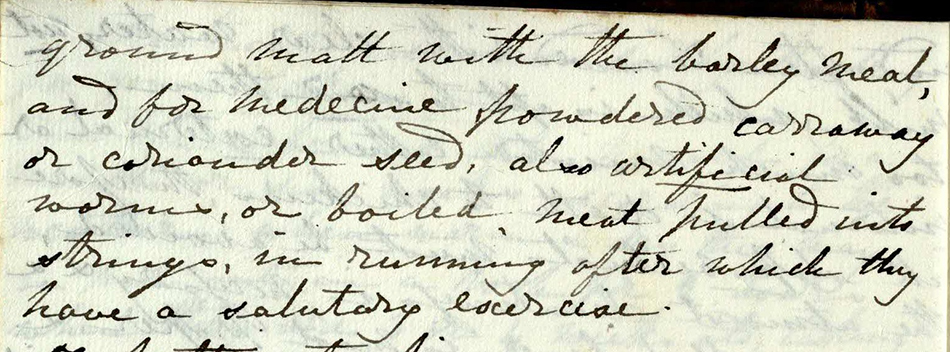 ground malt with the barley meal,
and for medecine powdered carraway
or coriander seed, also artificial
worms, or boiled meat pulled into
strings, in running after which they
have a salutary exercise.